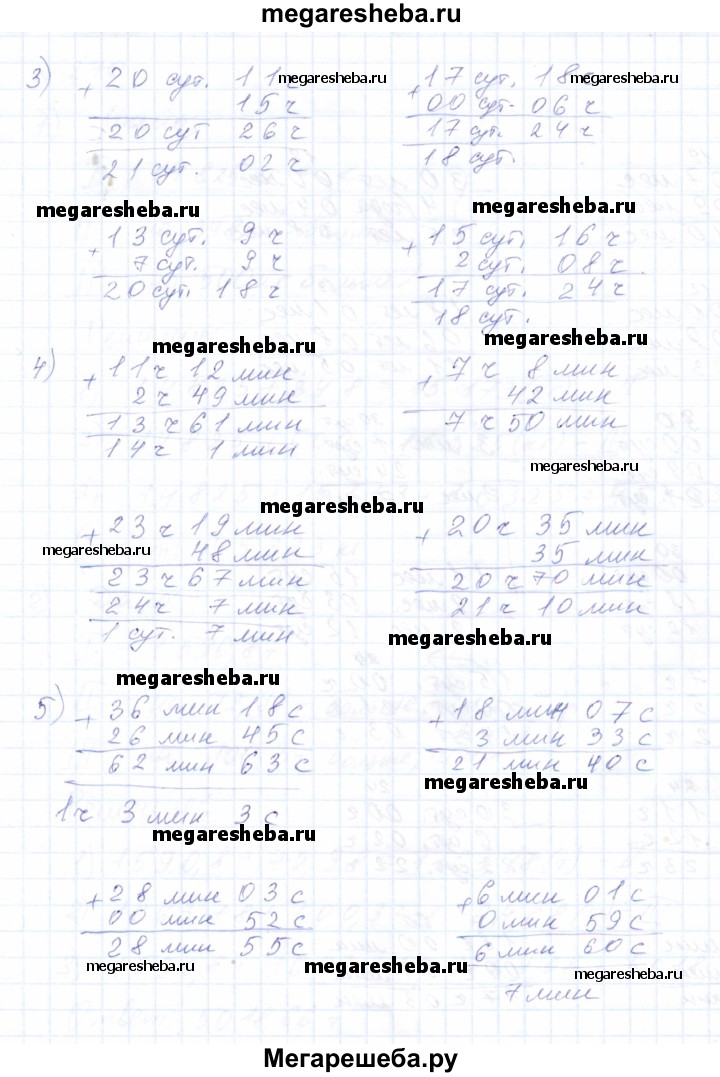 megaresheba.ru
3) + 20 сут. 11ч megaresheba.ru + 17 сут. 18ч megaresheba.ru
15ч 00 сут. 06 ч
20 сут 26 ч 17 сут. 24 ч
21 сут. 02 ч 18 сут.
megaresheba.ru megaresheba.ru
+ 13 сут. 9 ч + 15 сут. 16 ч
7 сут. 9 ч 2 сут. 08 ч
20 сут. 18 ч 17 сут. 24 ч
18 сут.
megaresheba.ru megaresheba.ru
4) + 11 ч 12 мин + 7 ч 8 мин
2 ч 49 мин 42 мин
13 ч 61 мин 7 ч 50 мин
14 ч 1 мин
megaresheba.ru
megaresheba.ru
+ 23 ч 19 мин + 20 ч 35 мин
megaresheba.ru 48 мин 35 мин
23 ч 67 мин 20 ч 70 мин
24 ч 7 мин 21 ч 10 мин
1 сут. 7 мин megaresheba.ru
megaresheba.ru
5) + 36 мин 18 с + 18 мин 07 с
26 мин 45 с 3 мин 33 с
62 мин 63 с 21 мин 40 с
megaresheba.ru
1ч 3 мин 3 с
megaresheba.ru
+ 28 мин 03 с + 6 мин 01 с
00 мин 52 с 0 мин 59 с
28 мин 55 с 6 мин 60 с
megaresheba.ru megaresheba.ru megaresheba.ru
7 мин
Мегарешеба.ру